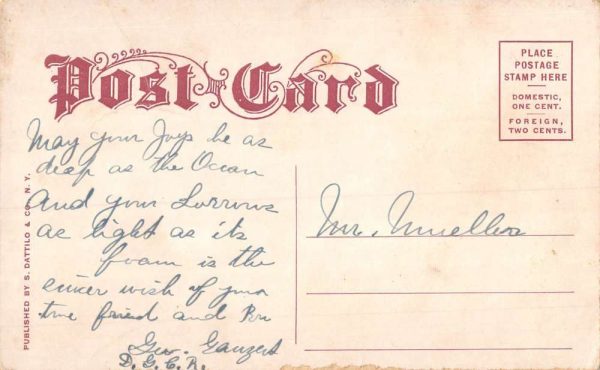 Post Card
PLACE
POSTAGE
STAMP HERE
DOMESTIC,
ONE CENT.
FOREIGN,
TWO CENTS.
May your Joys be as
deep as the Ocean
And your Sorrows
as light as its
foam is the
sincer wish of your
true friend and
Geo.
D. G. C. R.
Mr. Mueller
PUBLISHED BY S. DATTILO & CO. N. Y.